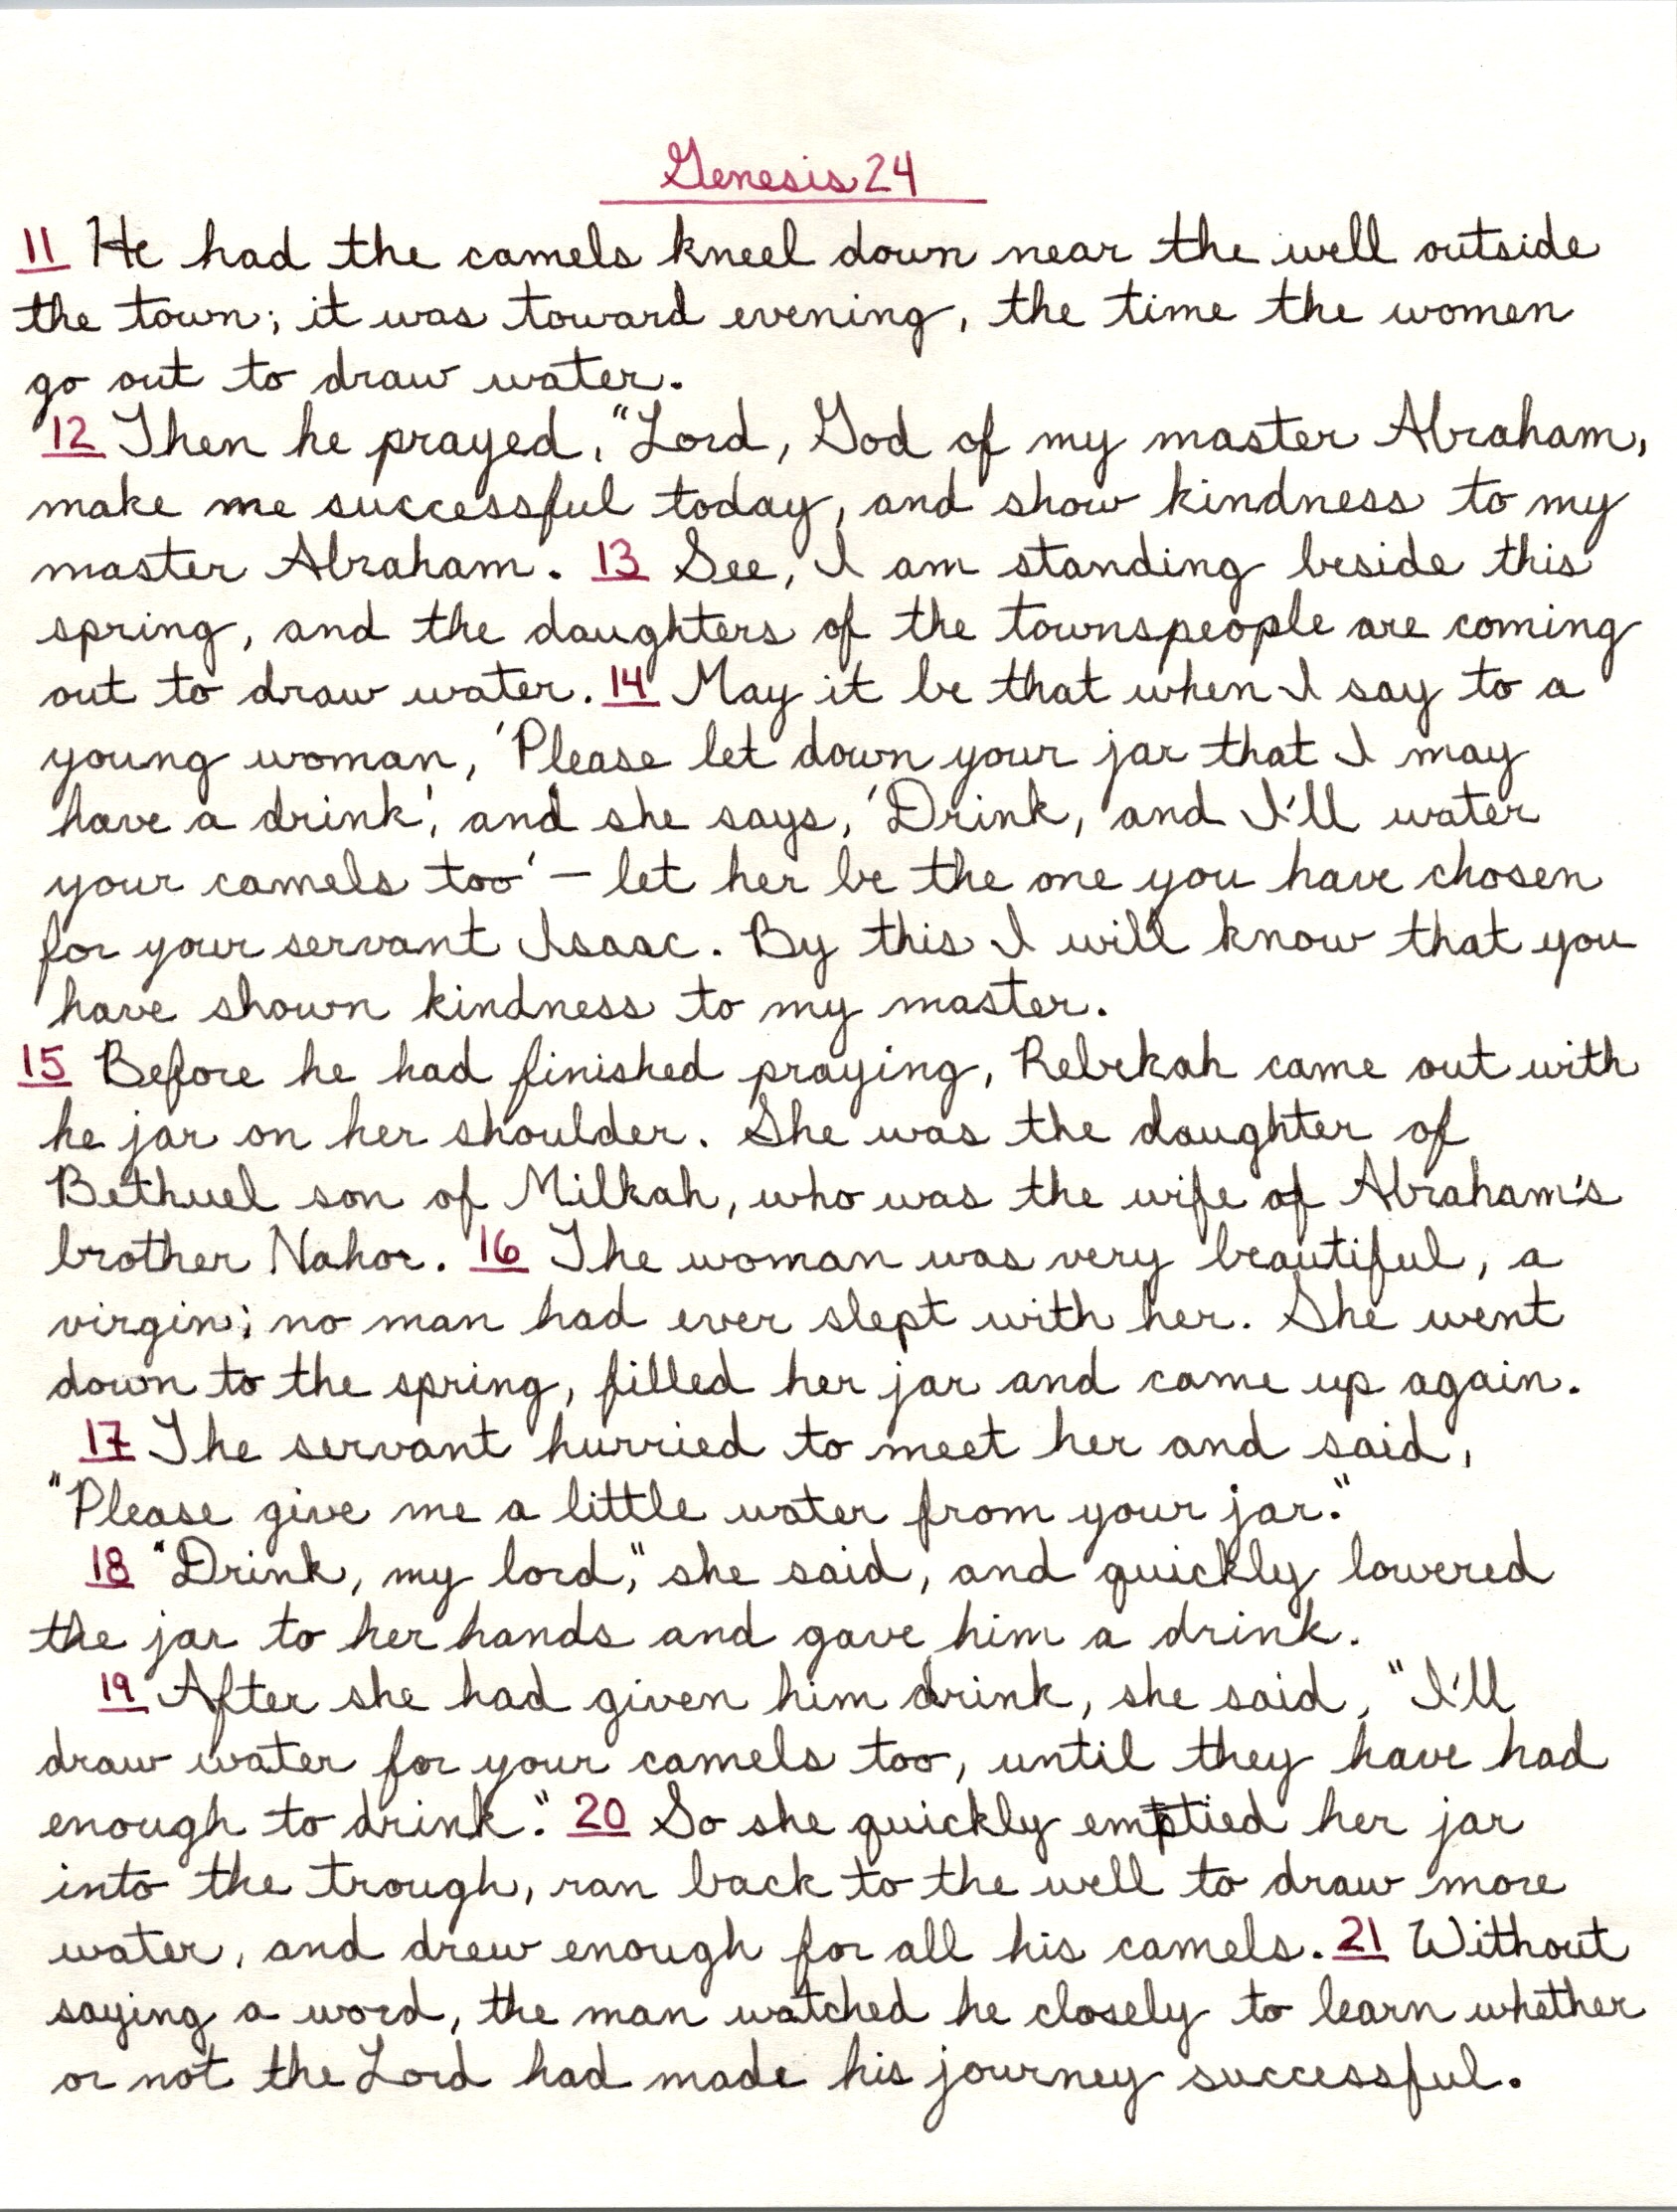 Genesis 24
11 He had the camels kneel down near the well outside
the town; it was toward evening, the time the women
go out to draw water.
12 Then he prayed, "Lord, God of my master Abraham,
make me successful today, and show kindness to my
master Abraham. 13 See, I am standing beside this
spring, and the daughters of the townspeople are coming
out to draw water. 14 May it be that when I say to a
young woman, 'Please let down your jar that I may
have a drink', and she says, 'Drink, and I'll water
your camels too' – let her be the one you have chosen
for your servant Isaac. By this I will know that you
have shown kindness to my master.
15 Before he had finished praying, Rebekah came out with
he jar on her shoulder. She was the daughter of
Bethuel son of Milkah, who was the wife of Abraham's
brother Nahor. 16 The woman was very beautiful, a
virgin; no man had ever slept with her. She went
down to the spring, filled her jar and came up again.
17 The servant hurried to meet her and said,
"Please give me a little water from your jar."
18 "Drink, my lord," she said, and quickly lowered
the jar to her hands and gave him a drink.
19 After she had given him drink, she said, "I'll
draw water for your camels too, until they have had
enough to drink." 20 So she quickly emptied her jar
into the trough, ran back to the well to draw more
water, and drew enough for all his camels. 21 Without
saying a word, the man watched he closely to learn whether
or not the Lord had made his journey successful.